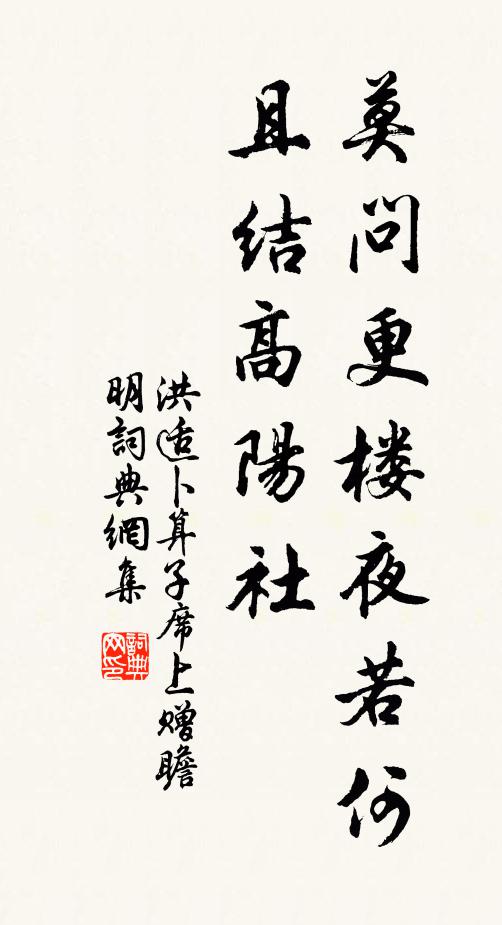 莫問更楼夜若何
且结高陽社
洪适卜算子席上赠瞻
明詞典網集
詞典网印